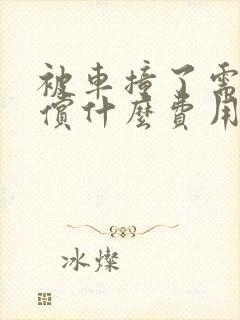 被車撞了需
償什麼費用
冰燦